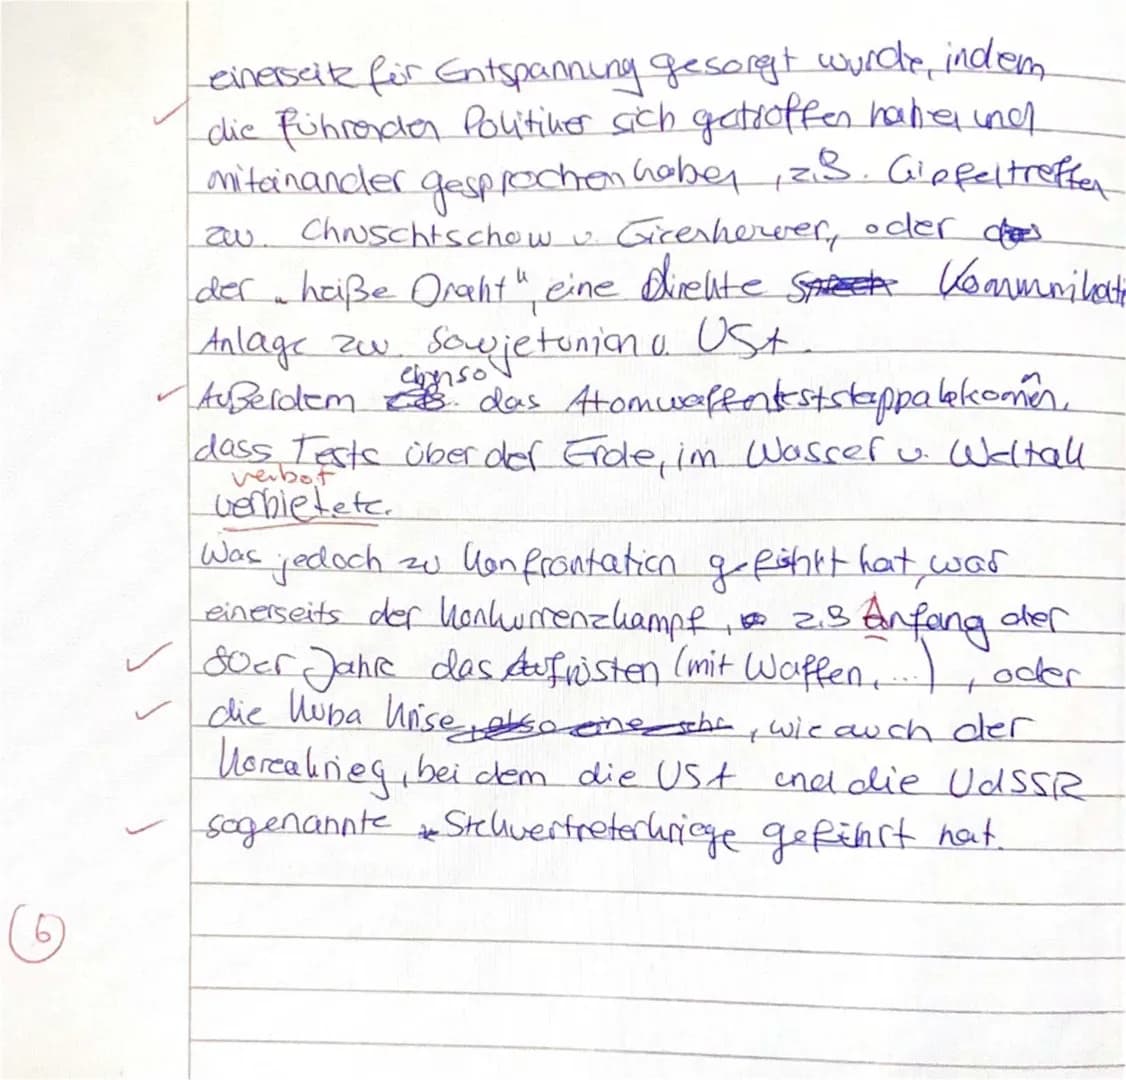 einerseits für Entspannung gesorgt wurde, indem
die führenden Politiker sich getroffen haben und
miteinander gesprochen haben, z.B. Gipfeltreffen
zw. Chruschtschow u. oder
der „heiße Draht", eine direkte Kommunikati
Anlage zw. Sowjetunion u. USA.
ebenso
Außerdem das Atomwaffenteststoppabkommen,
dass Tests über der Erde, im Wasser u. Weltall
verbot
verbietete.
Was jedoch zu Konfrontation geführt hat, war
einerseits der Konkurrenzkampf, z.B Anfang der
80er Jahre das Aufrüsten (mit Waffen, ...), oder
die Kuba Krise, wie auch der
Koreakrieg, bei dem die USA und die UdSSR
sogenannte Stellvertreterkriege geführt hat.
6